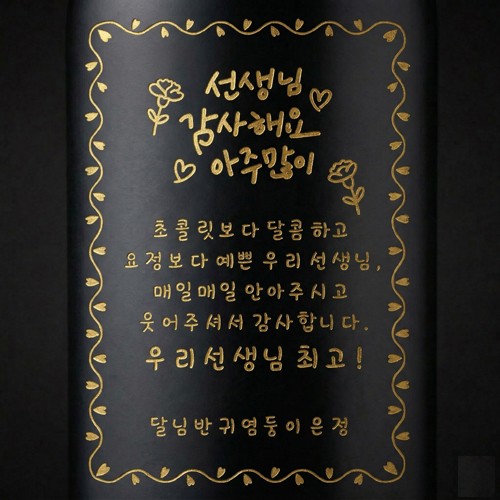 선생님
감사해요
아주많이
초콜릿보다 달콤하고
요정보다 예쁜 우리 선생님,
매일매일 안아주시고
웃어주셔서 감사합니다.
우리 선생님 최고!
달님반 귀염둥이 은정